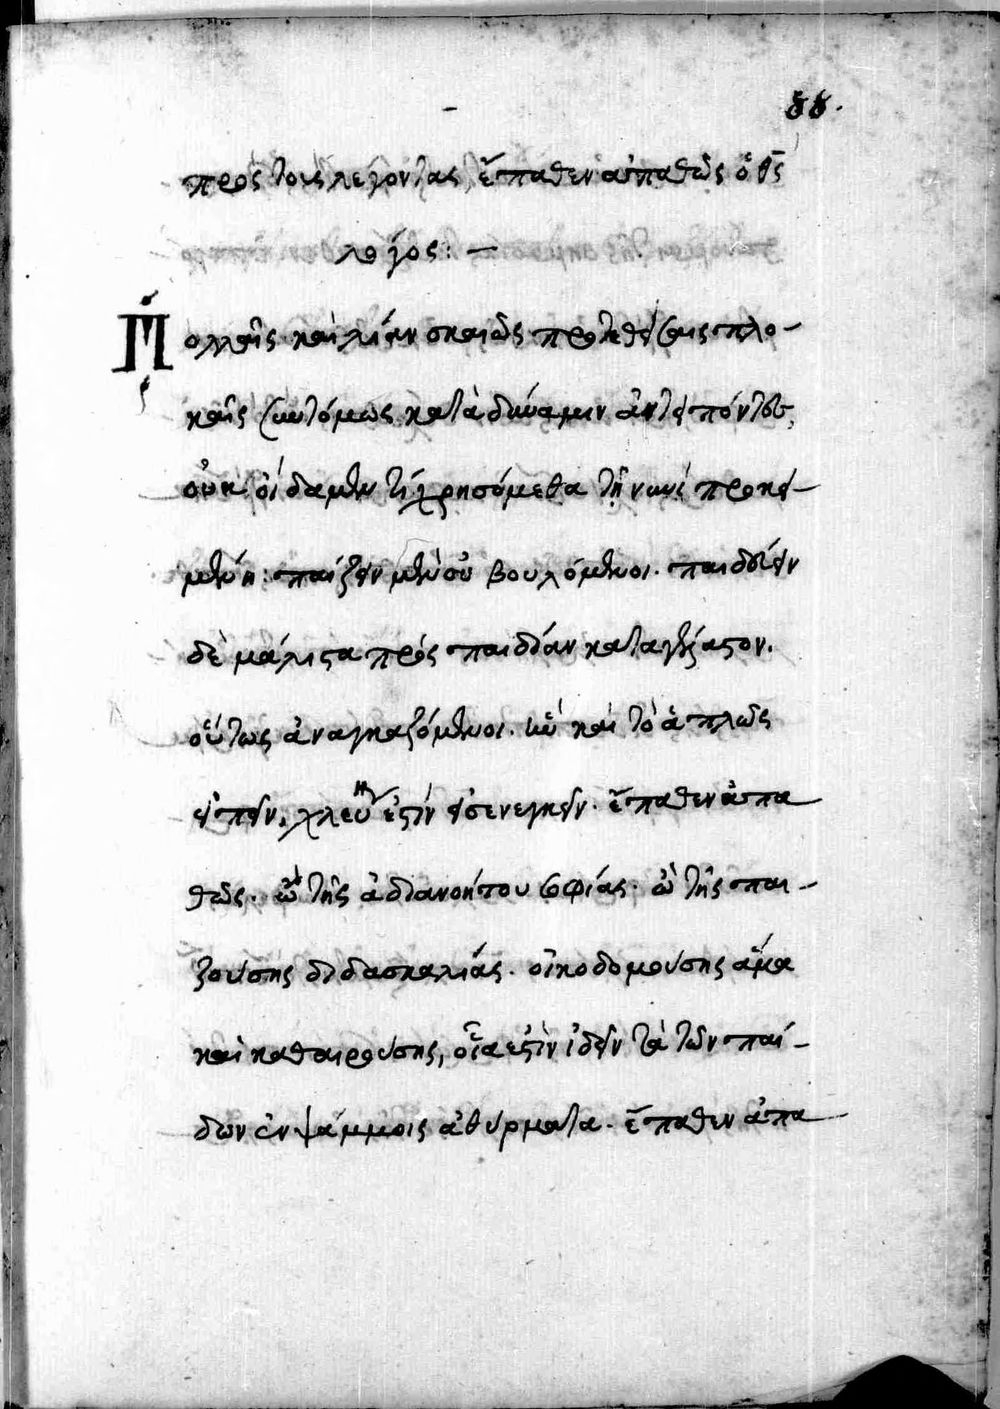 πρὸς τοὺς λέγοντας, ἔπαθεν ἀπαθῶς ὁ θς
λόγος: —
Πολλαῖς καὶ λίαν σκαιῶς προτεθείσαις πλο-
καῖς συντόμως κατὰ δύναμιν ἀντειπόντες,
οὐκ οἴδαμεν τί χρησόμεθα τῇ νυνὶ προκει-
μένῃ: παίζειν μὲν οὐ βουλόμενοι. παιδιὰν
δὲ μάλιστα πρὸς παιδιὰν καταγέλαστον.
οὕτως ἀναγκαζόμενοι. καὶ τὸ ἁπλῶς
εἰπεῖν, χλεύην ἐστὶν εἰσενεγκεῖν. ἔπαθεν ἀπα
θῶς. ὢ τῆς ἀδιανοήτου σοφίας. ὢ τῆς παι-
ζούσης διδασκαλίας. οἰκοδομούσης ἅμα
καὶ καθαιρούσης, οἷα ἐστὶν ἰδεῖν τὰ τῶν παί-
δων ἐν ψάμμοις ἀθύρματα. ἔπαθεν ἀπα